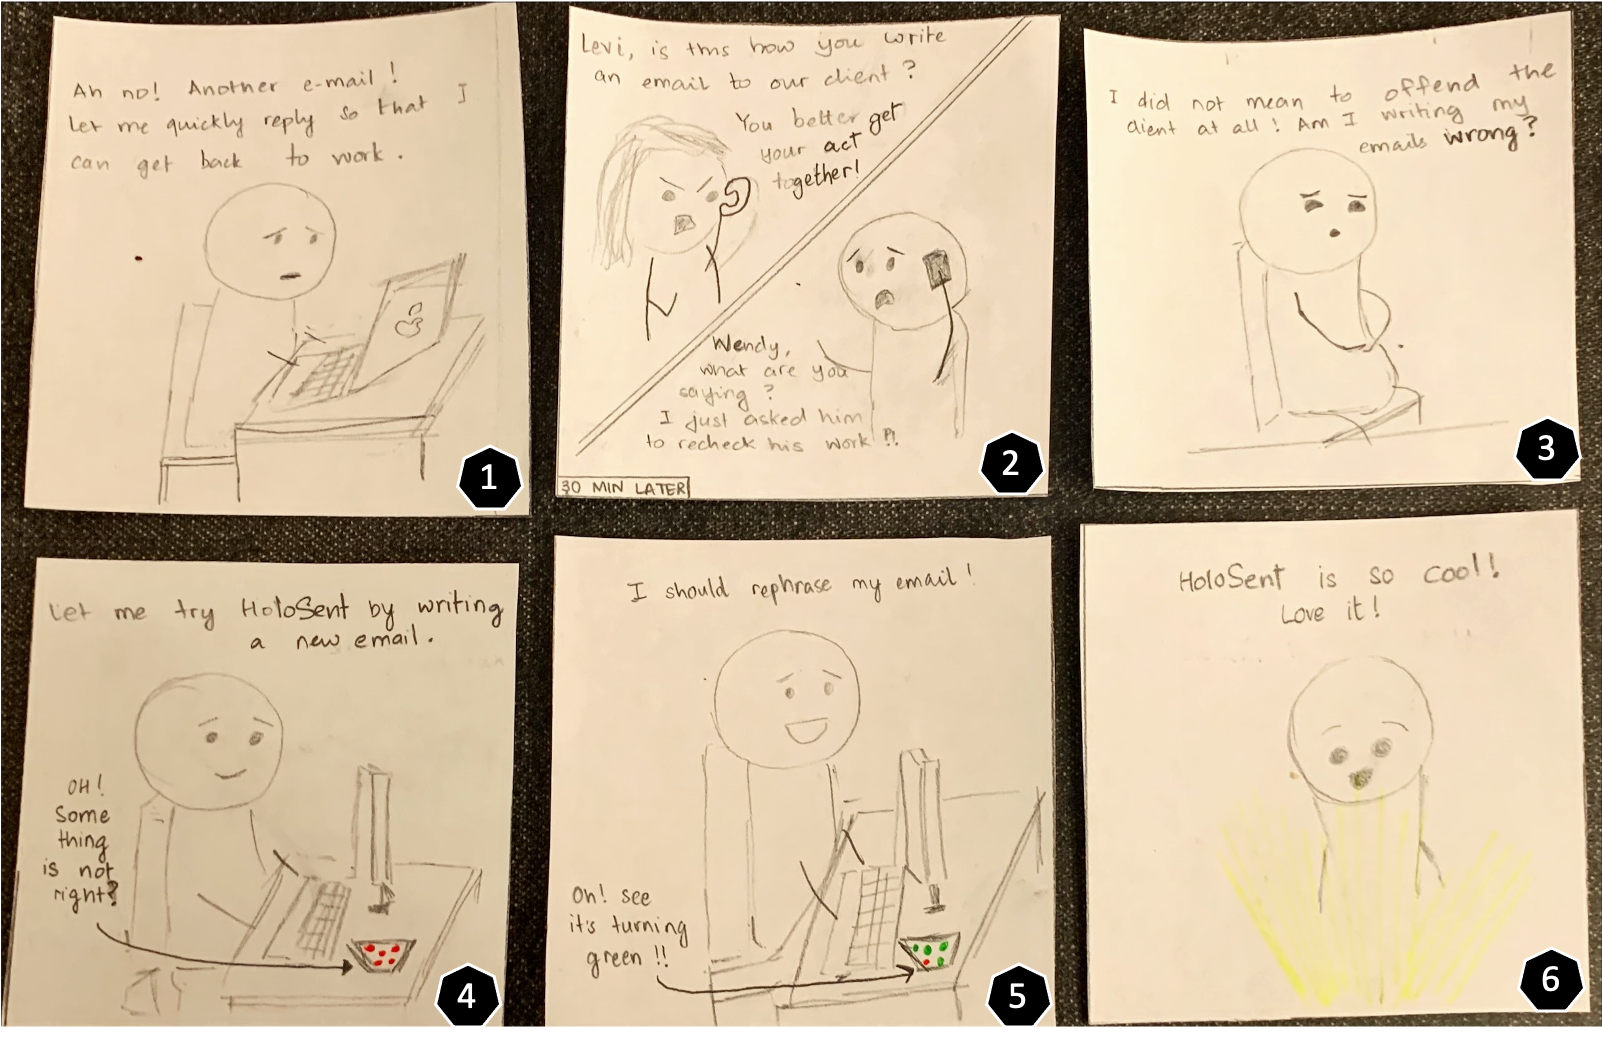 Ah no! Another e-mail!
Let me quickly reply so that I
can get back to work.
1
Levi, is this how you write
an email to our client?
You better get
your act
together!
Wendy,
what are you
saying?
I just asked him
to recheck his work ?!
30 MIN LATER
2
I did not mean to offend the
client at all! Am I writing my
emails wrong?
3
Let me try HoloSent by writing
a new email.
OH!
Some
thing
is not
right?
4
I should rephrase my email!
Oh! see
it's turning
green !!
5
HoloSent is so cool!
Love it!
6